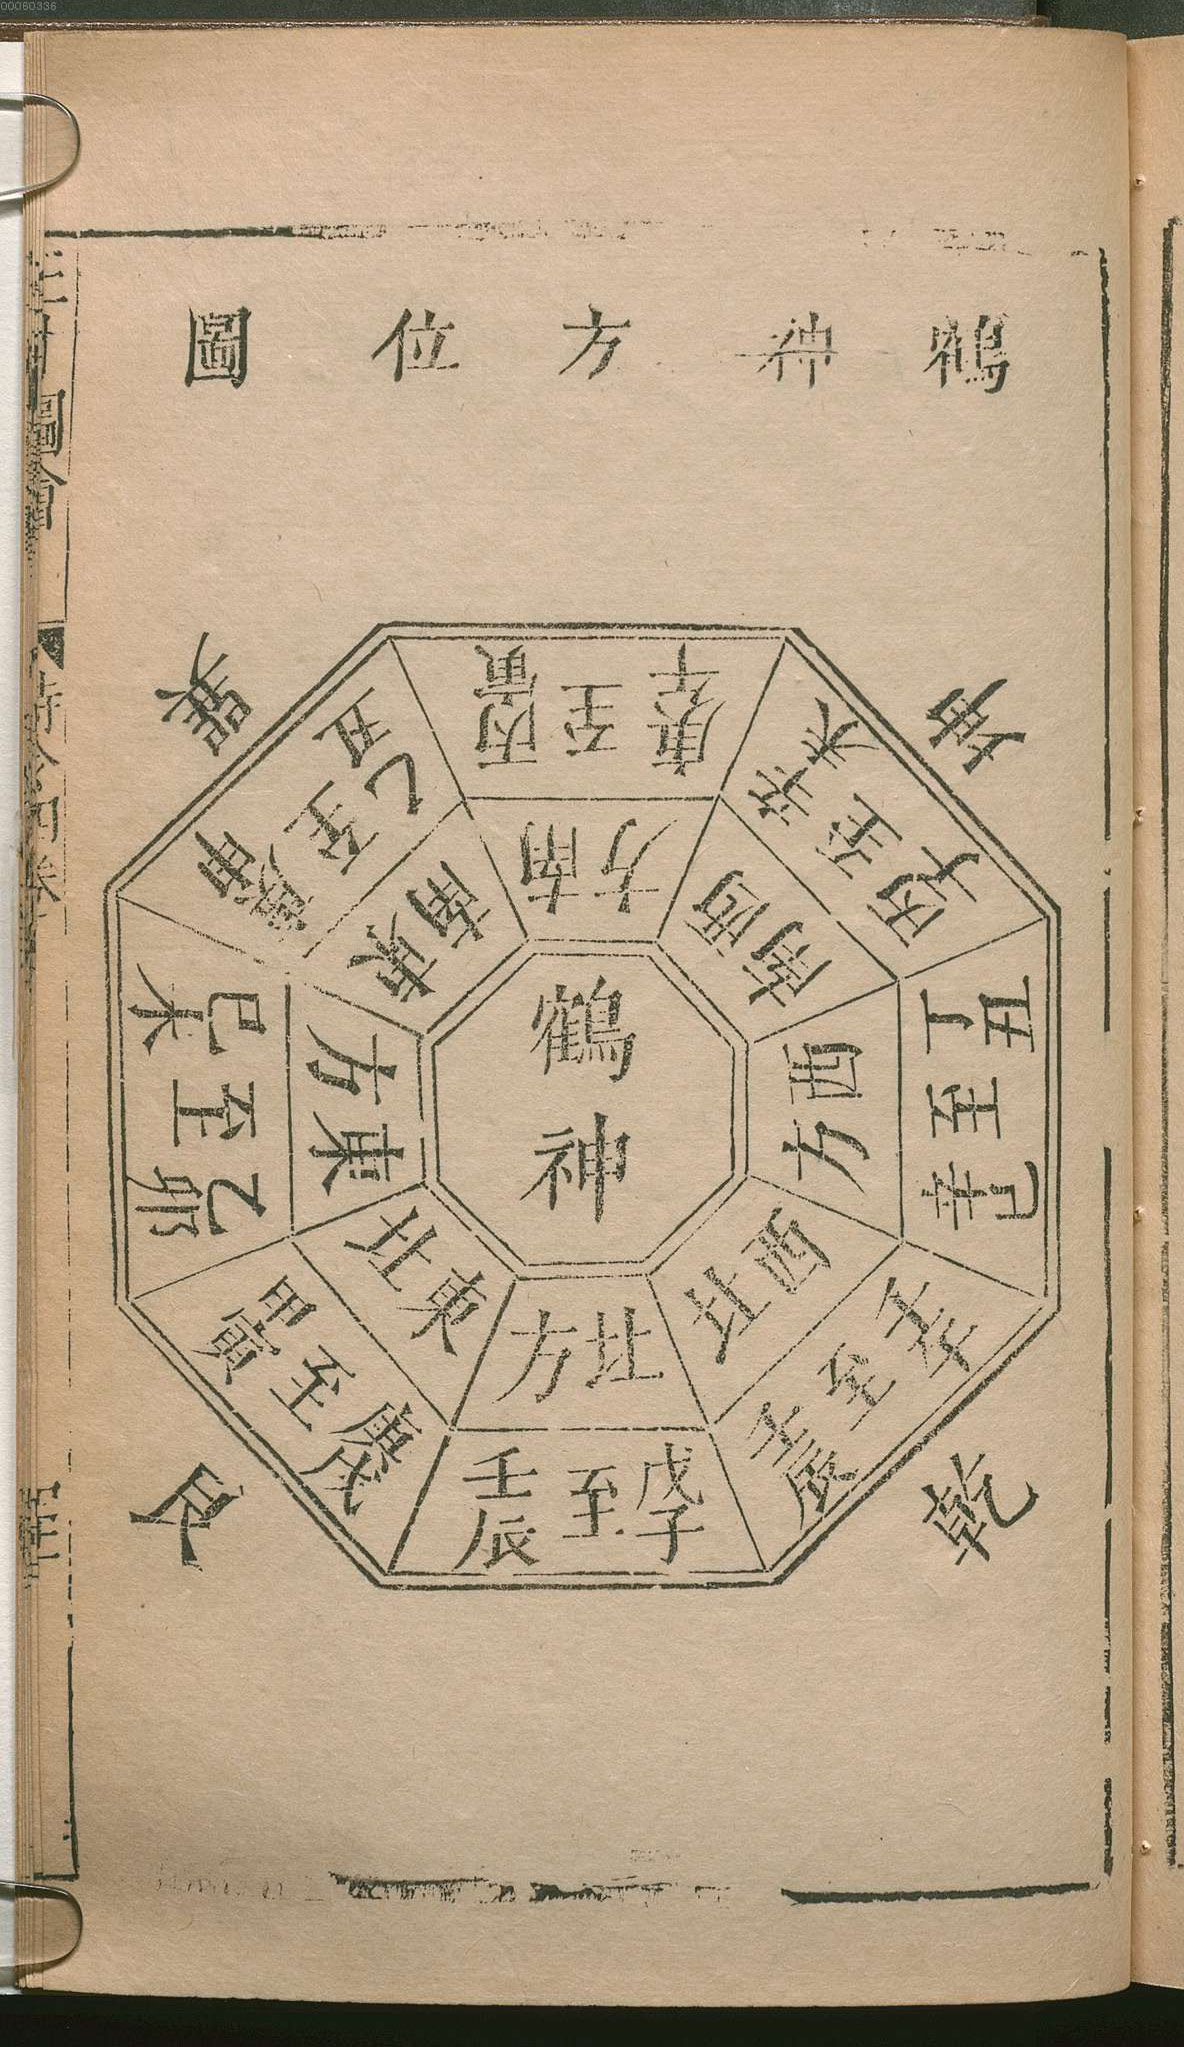 00060336
鶴神方位圖
三才圖會
時令四卷
巽
坤
艮
乾
鶴神
南方
庚午至丙寅
西南
辛未至丙子
西方
丁丑至辛巳
西北
壬午至壬辰
北方
戊子至壬辰
東北
庚戌至甲寅
東方
乙卯至己未
東南
庚申至乙丑